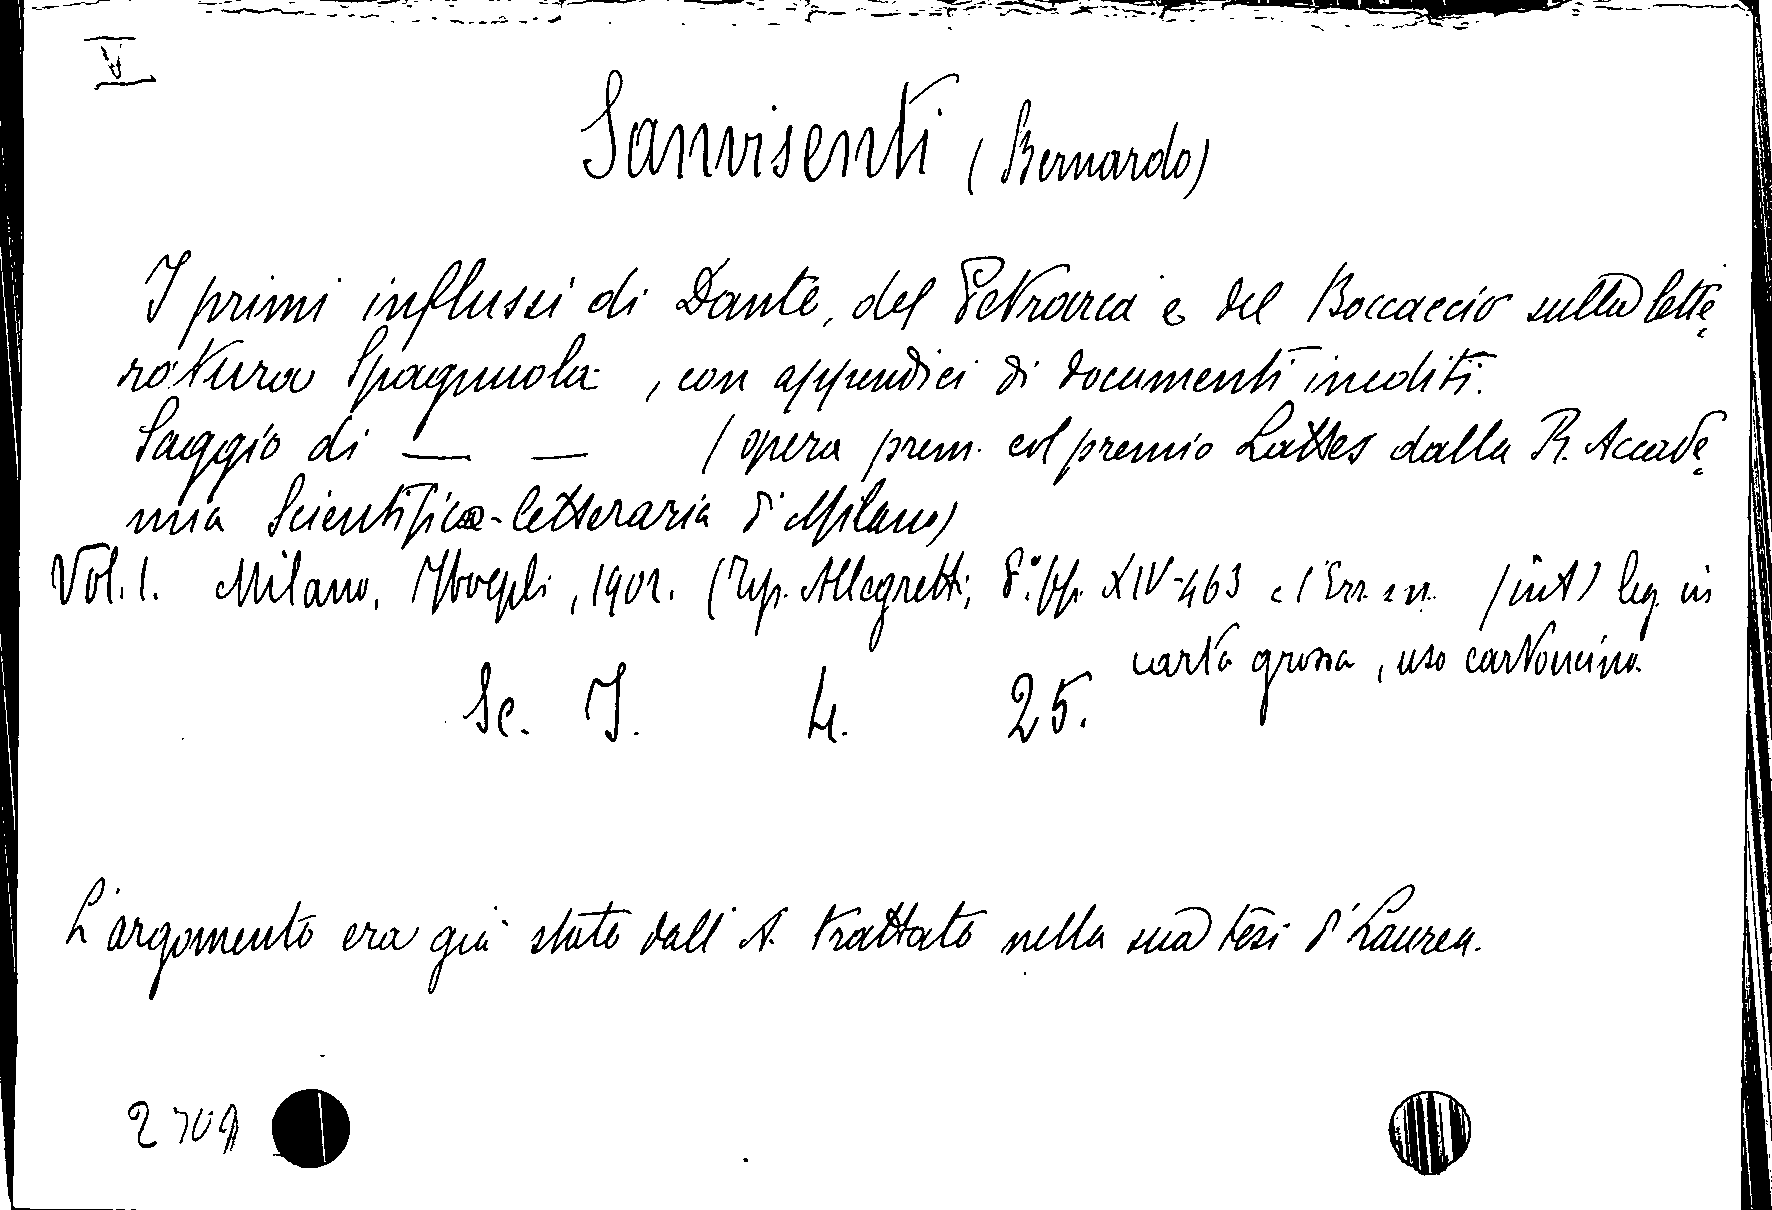 V
Sanvisenti (Bernardo)
I primi influssi di Dante, del Petrarca e del Boccaccio sulla lette
ratura Spagnuola, con appendici di documenti inediti.
Saggio di — — (opera prem. col premio Lattes dalla R. Accade
mia Scientifico-letteraria di Milano)
Vol. 1. Milano, Hoepli, 1902. (Tip. Allegretti, 8.° pp. XIV-463 (int) leg. in
carta grossa, uso cartoncino
Sc. I. 4. 25.
L'argomento era già stato dall'A. trattato nella sua tesi d'Laurea.